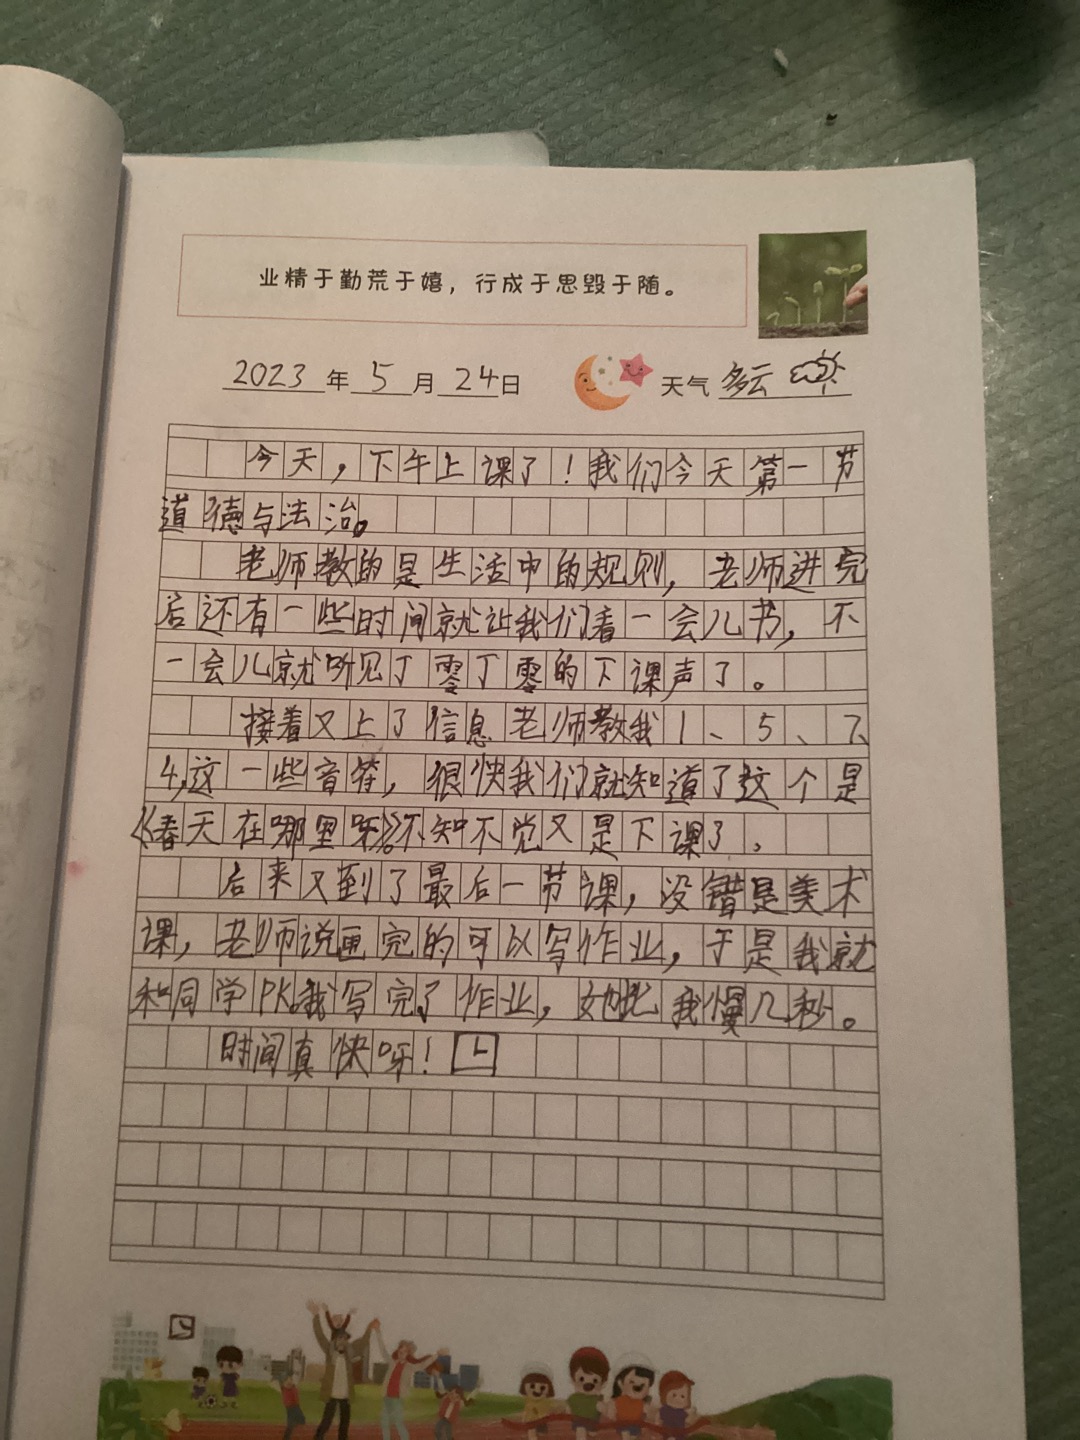 业精于勤荒于嬉，行成于思毁于随。
2023年5月24日 天气 多云
今天，下午上课了！我们今天第一节
道德与法治。
老师教的是生活中的规则，老师进完
后还有一些时间就让我们看一会儿书，不
一会儿就听见丁零丁零的下课声了。
接着又上了信息老师教我1、5、7、
4,这一些音符，很快我们就知道了这个是
《春天在哪里呀》。不知不觉又是下课了，
后来又到了最后一节课，没错是美术
课，老师说画完的可以写作业，于是我就
和同学PK。我写完了作业，她比我慢几秒。
时间真快呀！